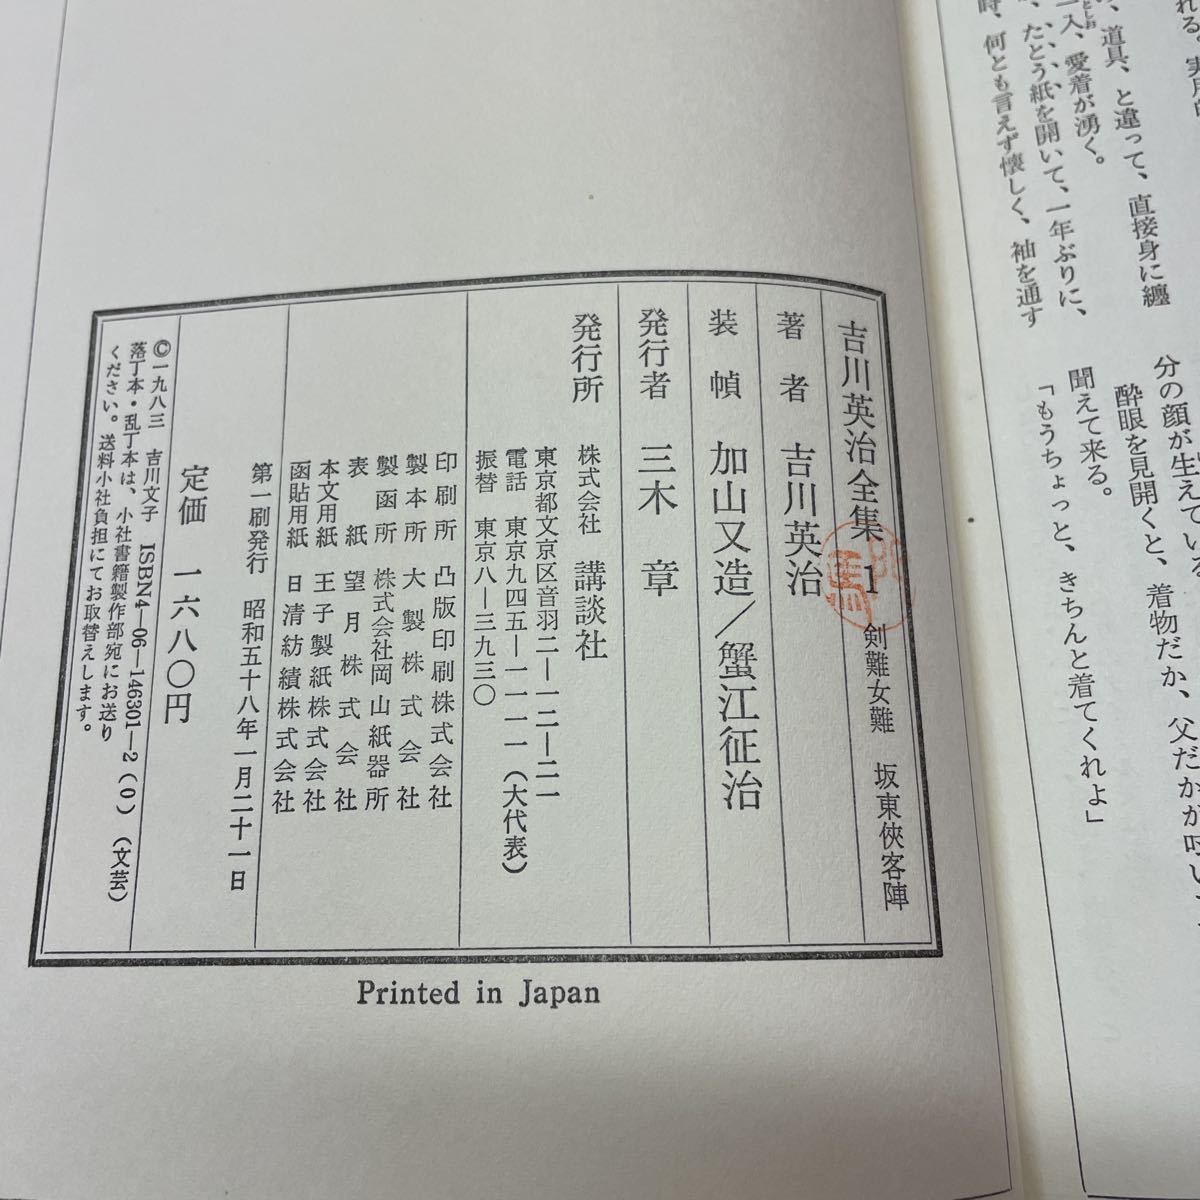 れる。実用
、道具、と違って、直接身に纏
一入、愛着が湧く。
、たとう紙を開いて、一年ぶりに、
時、何とも言えず懐しく、袖を通す
分の顔が生えている
酔眼を見開くと、着物だか、父だかが呼い
聞えて来る。
「もうちょっと、きちんと着てくれよ」
吉川英治全集 1 剣難女難 坂東俠客陣
著者 吉川英治
装幀 加山又造/蟹江征治
発行者 三木 章
発行所 株式会社 講談社
東京都文京区音羽二―一二―二一
電話 東京九四五―一一一一(大代表)
振替 東京八―三九三〇
印刷所 凸版印刷株式会社
製本所 大製株式会社
製函所 株式会社岡山紙器所
表紙 望月株式会社
本文用紙 王子製紙株式会社
函貼用紙 日清紡績株式会社
第一刷発行 昭和五十八年一月二十一日
定価 一六八〇円
©一九八三 吉川文子 ISBN4―06―146301―2(0)(文芸)
落丁本・乱丁本は、小社書籍製作部宛にお送り
ください。送料小社負担にてお取替えします。
Printed in Japan